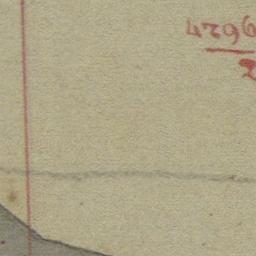 4296
2